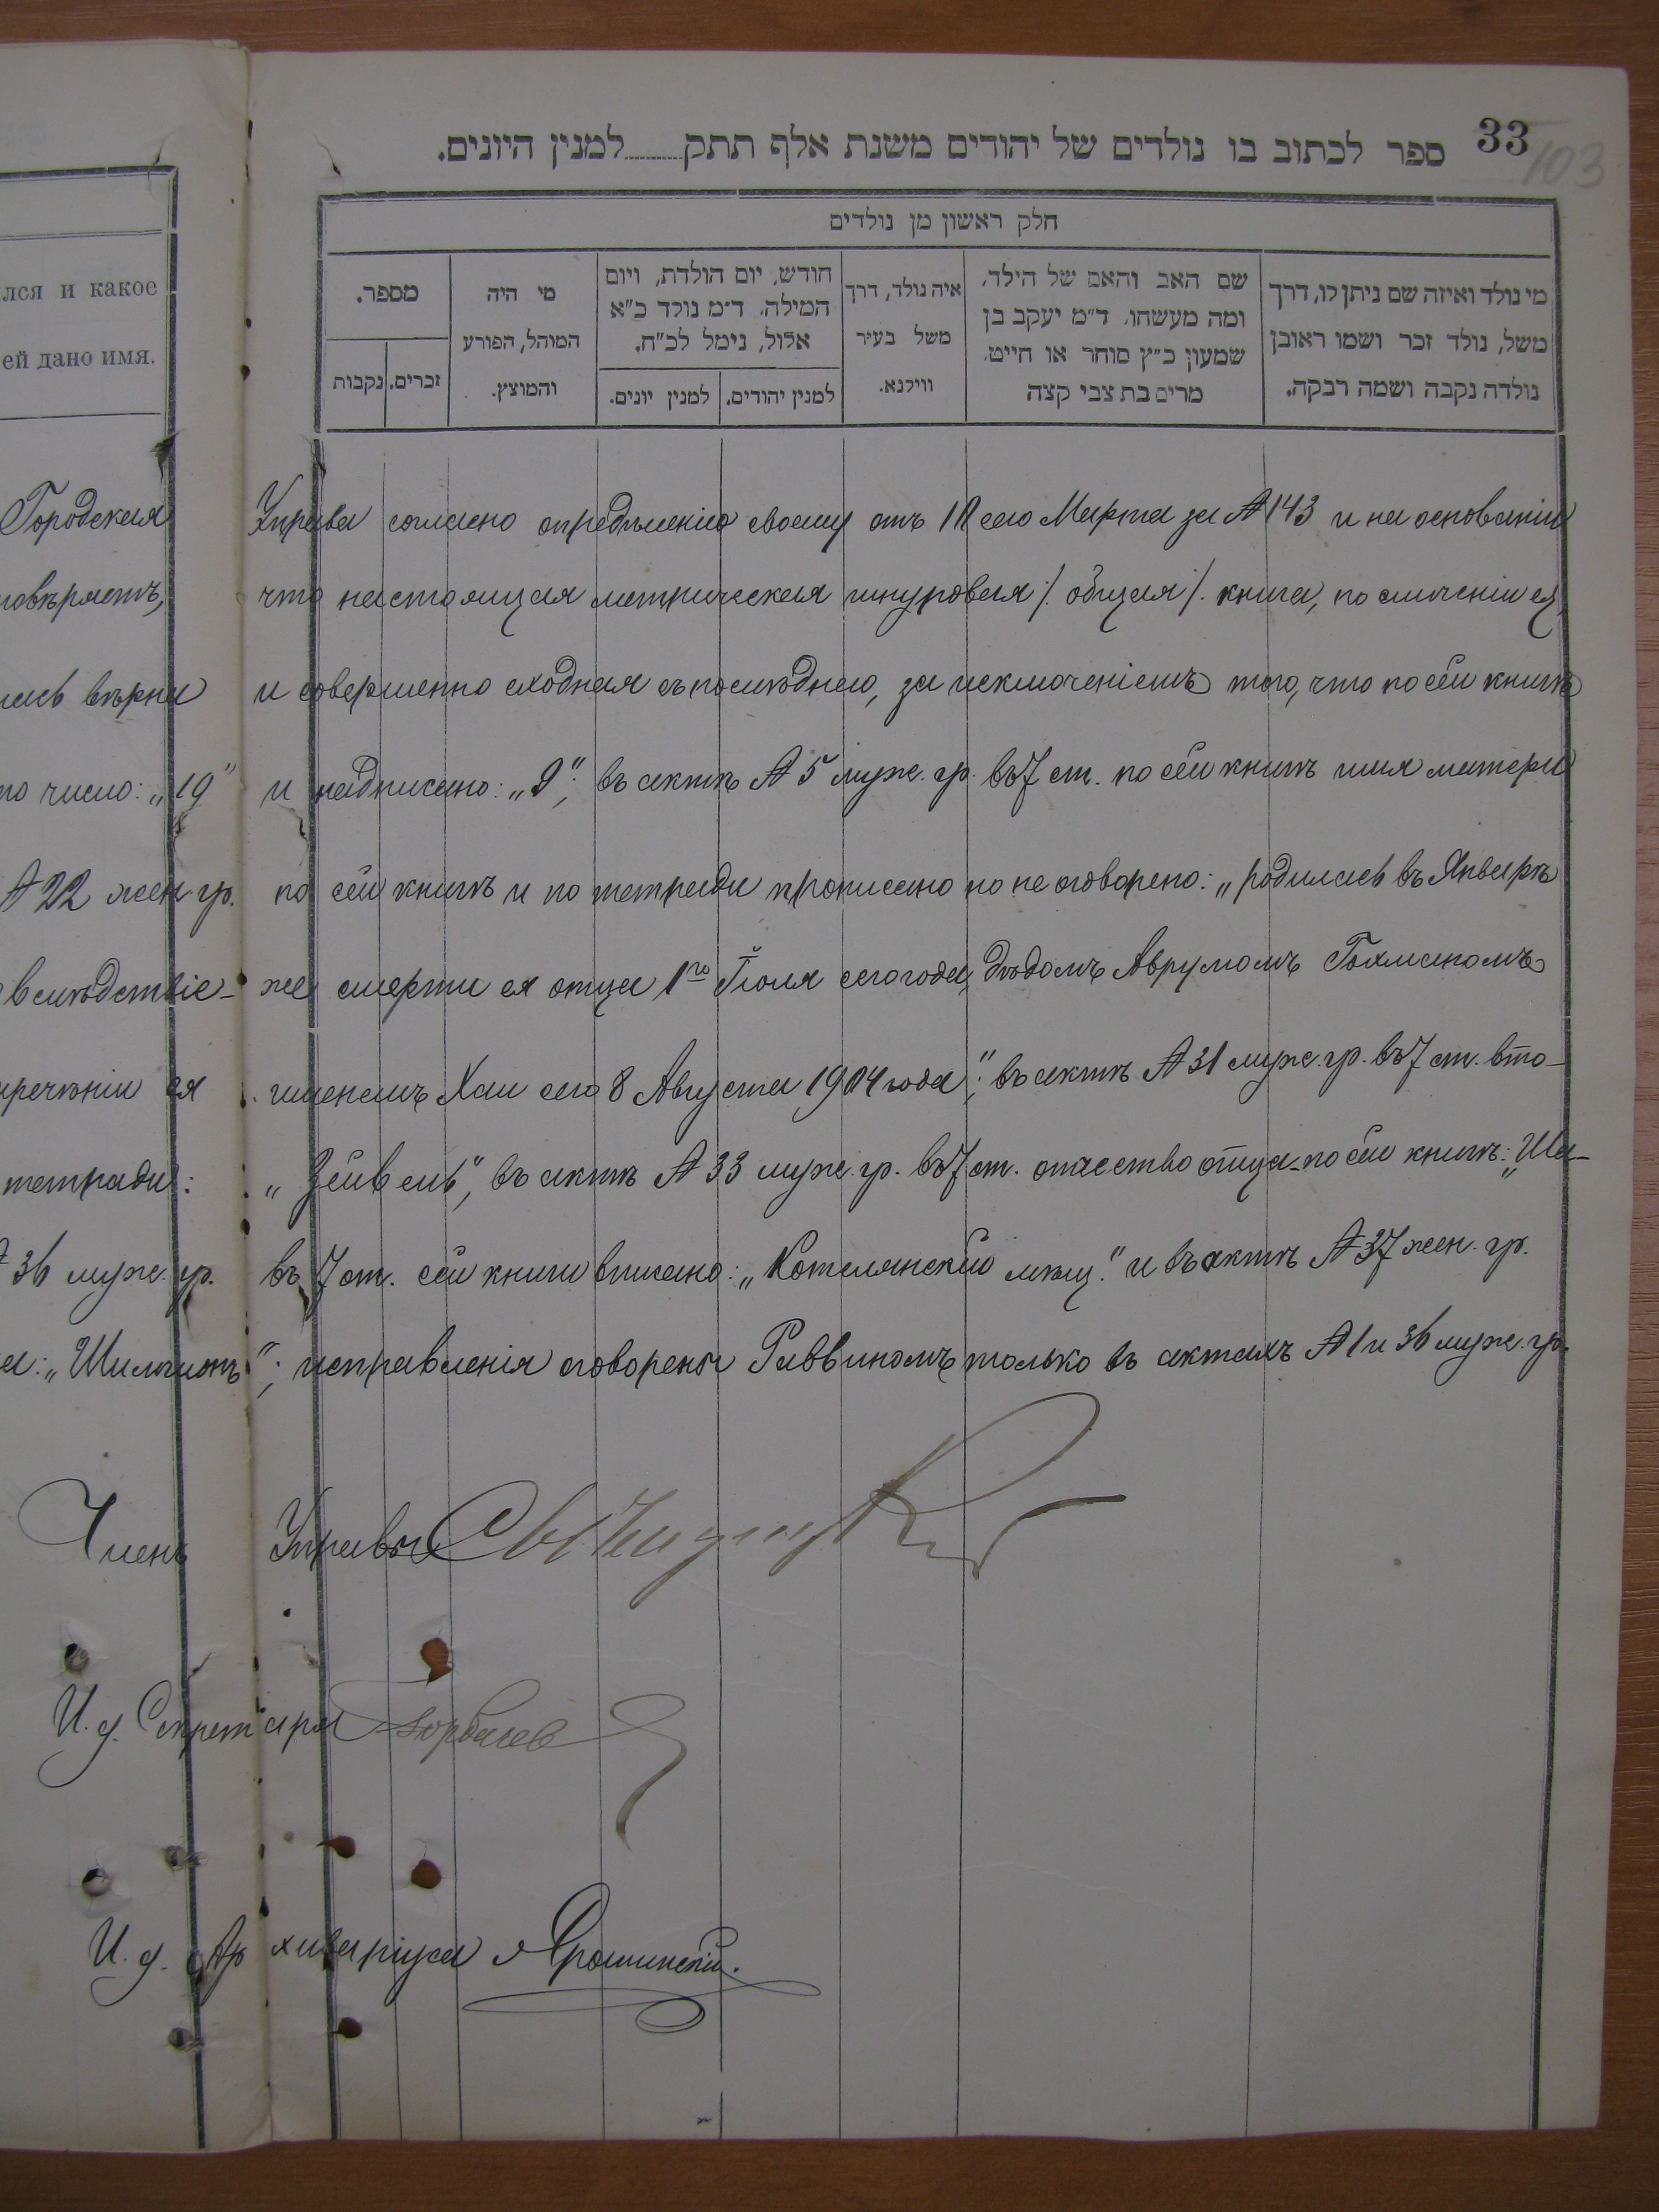 33
103
ספר לכתוב בו נולדים של יהודים משנת אלף תתק........למנין היונים.
חלק ראשון מן נולדים
מי נולד ואיזה שם ניתן לו, דרך
משל, נולד זכר ושמו ראובן
נולדה נקבה ושמה רבקה.
שם האב והאם של הילד,
ומה מעשהו. ד"מ יעקב בן
שמעון כ"ץ סוחר או חייט.
מרים בת צבי קצה
איה נולד, דרך
משל בעיר
ווילנא.
חודש, יום הולדת, ויום
המילה. ד"מ נולד כ"א
אלול, נימל לכ"ח.
למנין יהודים.
למנין יונים.
מי היה
המוהל, הפורע
והמוצץ.
מספר.
זכרים.
נקבות
лся и какое
ей дано имя.
Городская Управа согласно определѣнію своему отъ 18 сего Марта за № 143 и на основаніи
повѣряетъ, что настоящая метрическая шнуровая /. общая /. книга, по сличеніи ея,
лась вѣрна и совершенно сходная съ послѣднею, за исключеніемъ того, что по сей книгѣ
то число: „19" и надписано: „9"; въ актѣ № 5 муж. гр. въ 7 ст. по сей книгѣ имя матери
№ 22 жен. гр. по сей книгѣ и по тетради прописано но не оговорено: „родилась въ Январѣ
вслѣдствіе же смерти ея отца 1го Іюля сего года, дѣдомъ Аврумомъ Гохманомъ
нареченіи ея именемъ Хаи сего 8 Августа 1904 года"; въ актѣ № 31 муж. гр. въ 7 ст. вто-
тетради: „Зейвель", въ актѣ № 33 муж. гр. въ 7 ст. отчество отца по сей книгѣ: „Ша-
№ 36 муж. гр. въ 7 ст. сей книги вписано: „Котелянскій мѣщ." и въ актѣ № 37 жен. гр.
а: „Шиломъ"; исправленія оговорены Раввиномъ только въ актахъ № 1 и 36 муж. гр.
Членъ Управы
И. д. Секретаря Горбачев
И. д. Архиваріуса Ярошинскій.